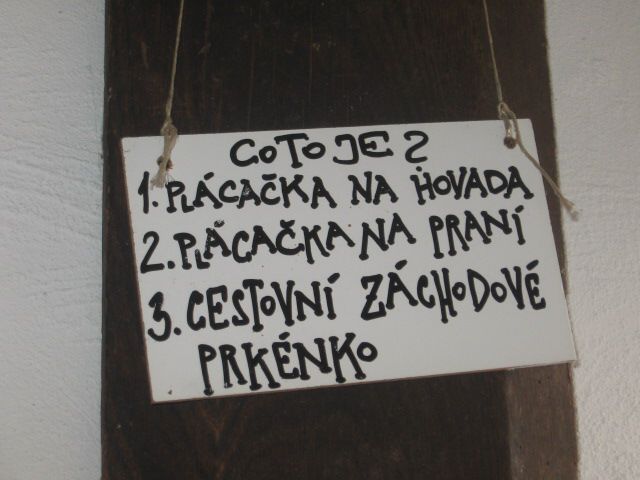 CO TO JE?
1. PLÁCAČKA NA HOVADA
2. PLÁCAČKA NA PRANÍ
3. CESTOVNÍ ZÁCHODOVÉ
PRKÉNKO